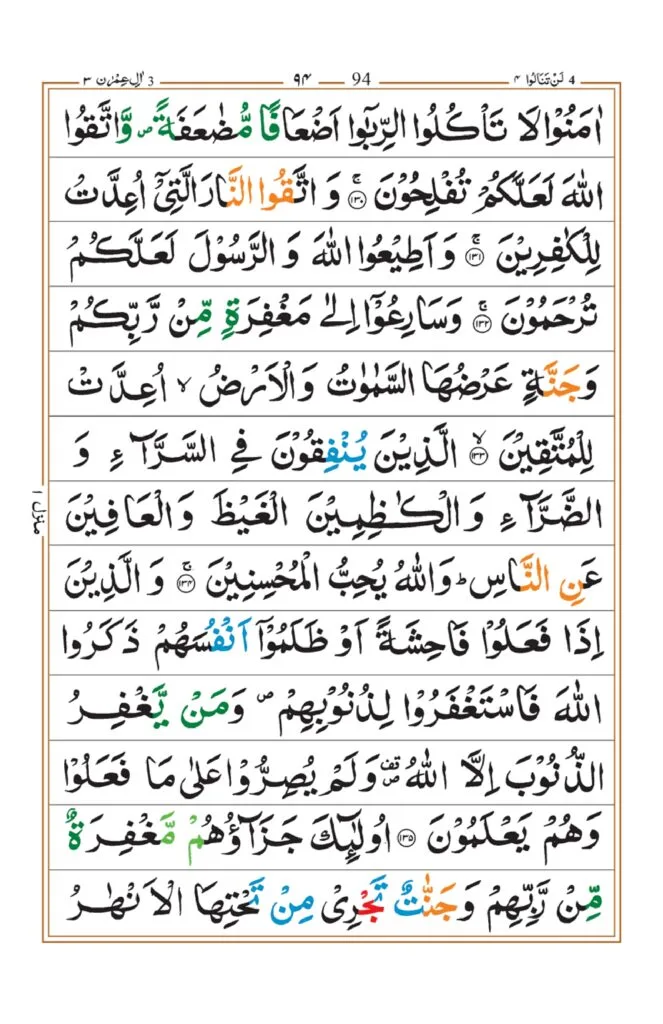 اٰل عِمْرٰن ٣ 3 ٩٤ 94 لَنْ تَنَالُوا ٤ 4
اٰمَنُوْا لَا تَاْكُلُوا الرِّبٰۤوا اَضْعَافًا مُّضٰعَفَةً ۪ وَّاتَّقُوا
اللّٰهَ لَعَلَّكُمْ تُفْلِحُوْنَ ۚ﴿۱۳۰﴾ وَ اتَّقُوا النَّارَ الَّتِیْۤ اُعِدَّتْ
لِلْكٰفِرِیْنَ ۚ﴿۱۳۱﴾ وَ اَطِیْعُوا اللّٰهَ وَ الرَّسُوْلَ لَعَلَّكُمْ
تُرْحَمُوْنَ ۚ﴿۱۳۲﴾ وَ سَارِعُوْۤا اِلٰی مَغْفِرَةٍ مِّنْ رَّبِّكُمْ
وَ جَنَّةٍ عَرْضُهَا السَّمٰوٰتُ وَ الْاَرْضُ ۙ اُعِدَّتْ
لِلْمُتَّقِیْنَ ۙ﴿۱۳۳﴾ الَّذِیْنَ یُنْفِقُوْنَ فِی السَّرَّآءِ وَ
الضَّرَّآءِ وَ الْكٰظِمِیْنَ الْغَیْظَ وَ الْعَافِیْنَ
عَنِ النَّاسِ ؕ وَ اللّٰهُ یُحِبُّ الْمُحْسِنِیْنَ ۚ﴿۱۳۴﴾ وَ الَّذِیْنَ
اِذَا فَعَلُوْا فَاحِشَةً اَوْ ظَلَمُوْۤا اَنْفُسَهُمْ ذَكَرُوا
اللّٰهَ فَاسْتَغْفَرُوْا لِذُنُوْبِهِمْ ۪ وَ مَنْ یَّغْفِرُ
الذُّنُوْبَ اِلَّا اللّٰهُ ۪۫ وَ لَمْ یُصِرُّوْا عَلٰی مَا فَعَلُوْا
وَ هُمْ یَعْلَمُوْنَ ﴿۱۳۵﴾ اُولٰٓىِٕكَ جَزَآؤُهُمْ مَّغْفِرَةٌ
مِّنْ رَّبِّهِمْ وَ جَنّٰتٌ تَجْرِیْ مِنْ تَحْتِهَا الْاَنْهٰرُ
منزل ۱